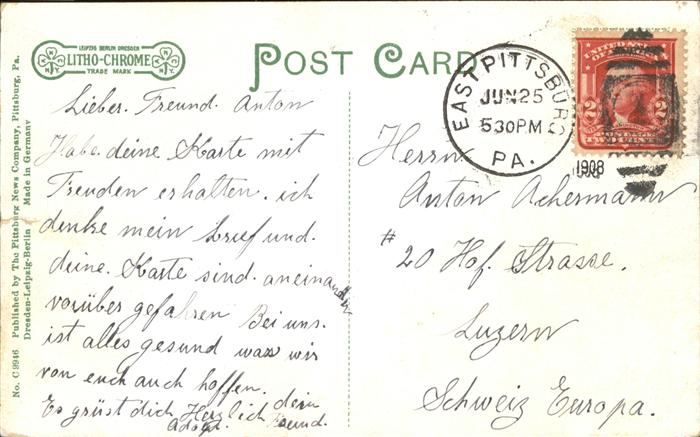 LEIPZIG BERLIN DRESDEN
LITHO-CHROME
TRADE MARK
N.Y.
N.Y.
POST CARD
EAST PITTSBURG
JUN 25
530PM
PA.
1908
UNITED STATES
2 2
POSTAGE
TWO CENTS
No. C 9946 Published by The Pittsburg News Company, Pittsburg, Pa.
Dresden-Leipzig-Berlin Made in Germany
Lieber. Freund. Anton
Habe. deine. Karte mit
Freuden erhalten. ich
denke mein brief und.
deine. Karte sind. aneinander
vorüber gefahren Bei uns.
ist alles gesund was wir
von euch auch hoffen.
Es grüst dich Herzlich dein
Adolf. Freund.
Herrn
Anton Achermann
# 20 Hof. Strasse.
Luzern
Schweiz Europa.